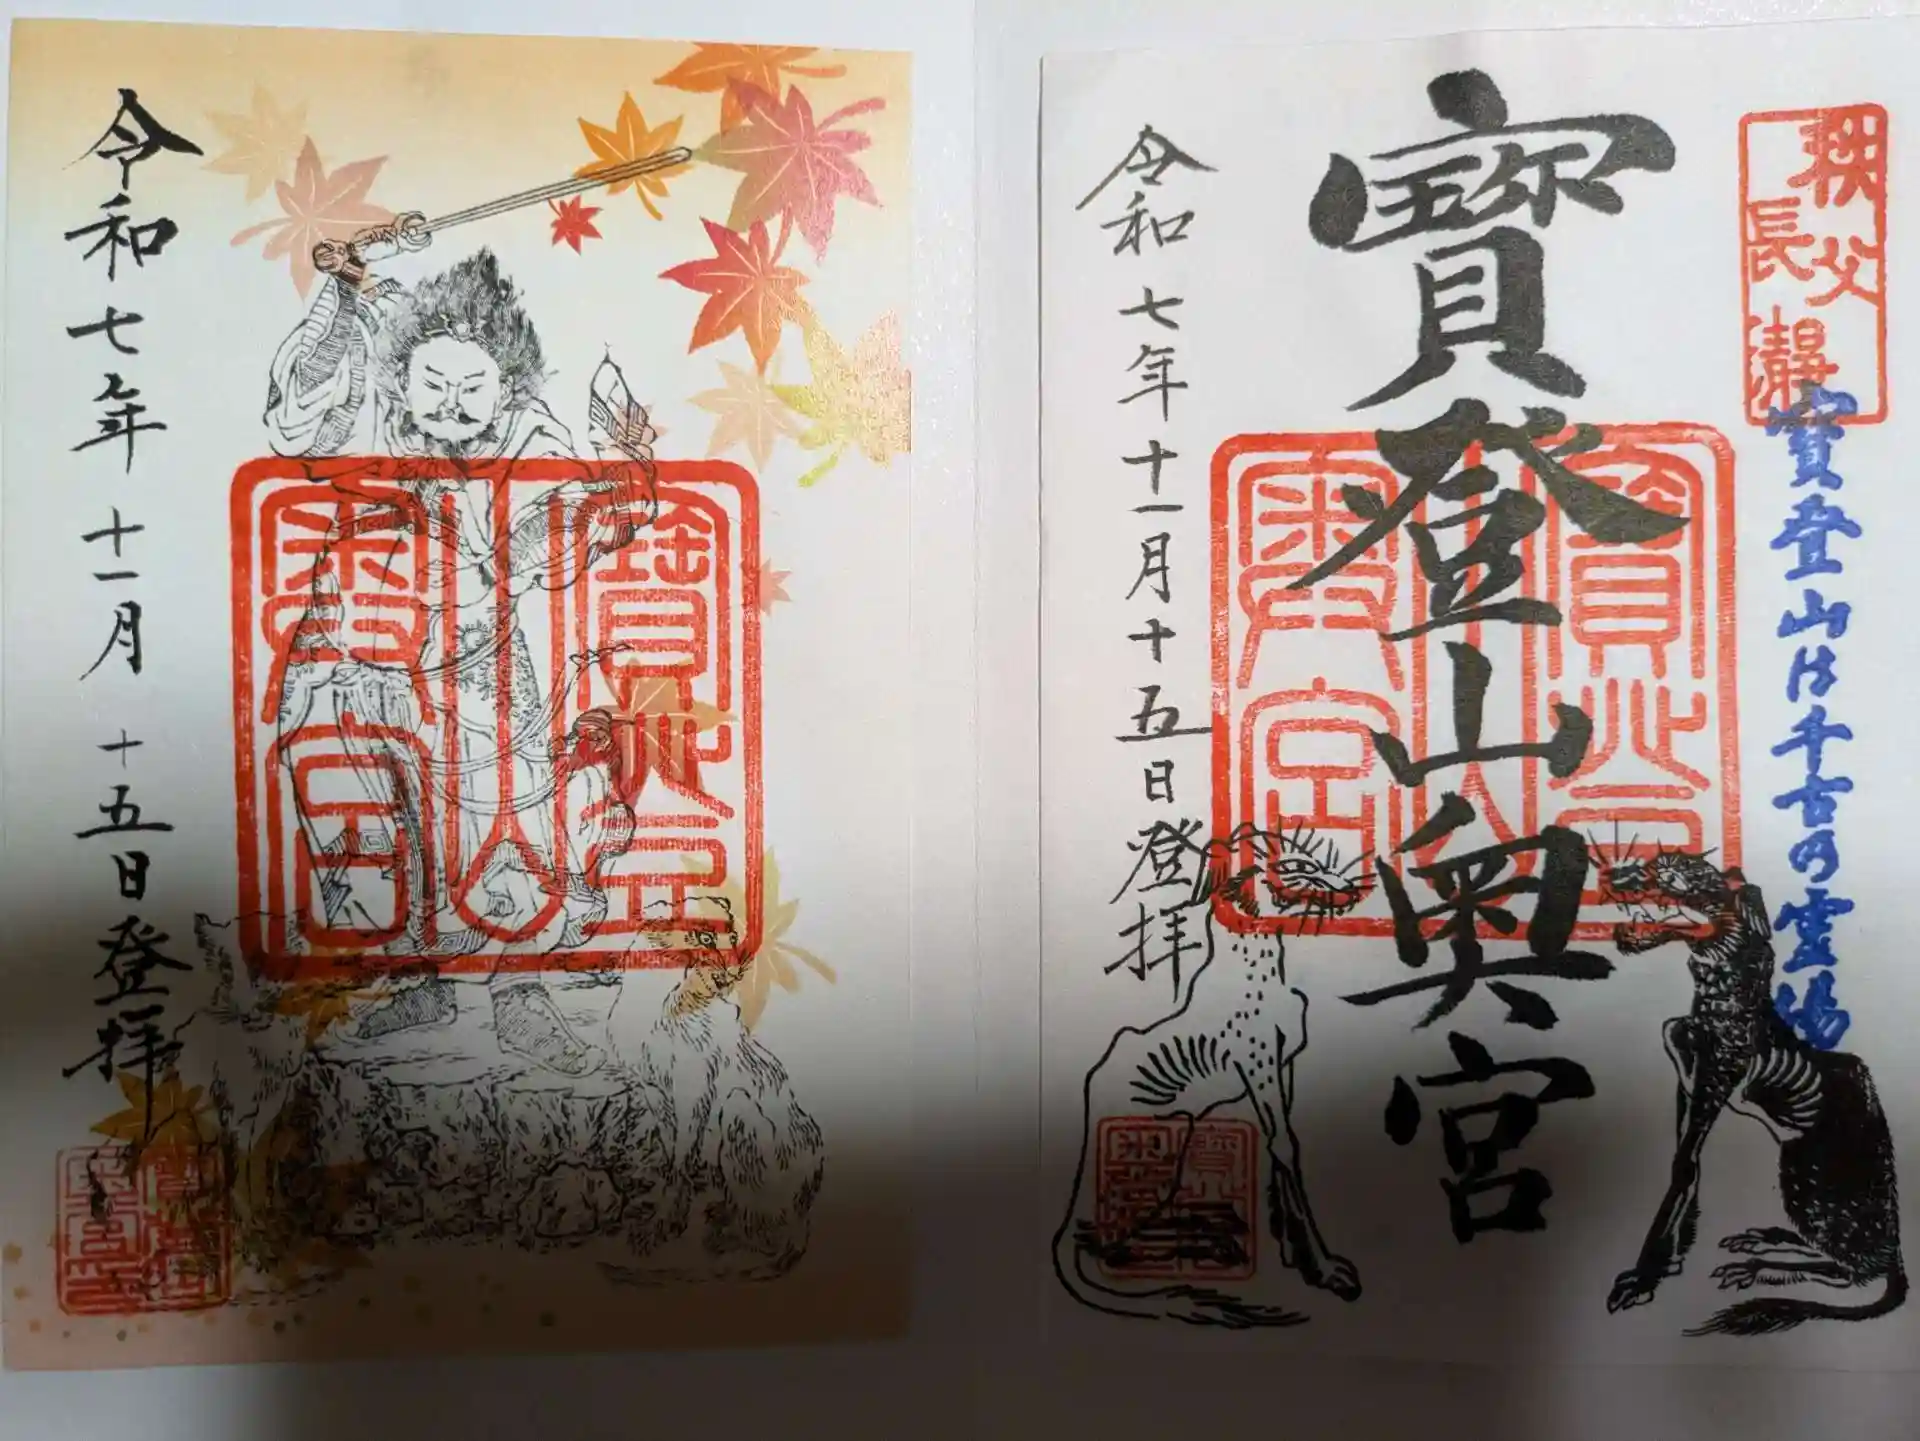 令和七年十一月十五日登拝
寳登山奥宮
秩父
長瀞
寳登山は千古の霊場
寳登山奥宮
令和七年十一月十五日登拝
寳登山奥宮